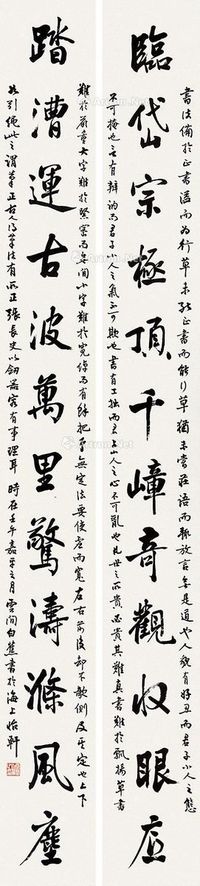 書法備於正書溢而為行草未能正書而能行草猶未嘗莊語而輒放言無是道也人貌有好醜而君子小人之態
臨岱宗極頂千嶂奇觀收眼底
不可掩也言有辯訥而君子小人之氣不可欺也書有工拙而君子小人之心不可亂也凡世之所貴必貴其難真書難於飄揚草書
難於嚴重大字難於結密而無間小字難於寬綽而有餘把筆無定法要使虛而寬左右前後却不欹側 定也上下
踏漕運古波萬里驚濤滌風塵
如引繩此之謂筆正古人得筆法有所正張長史以劍器容有事理耳 時在壬午嘉平之月雲間白蕉書於海上怡軒